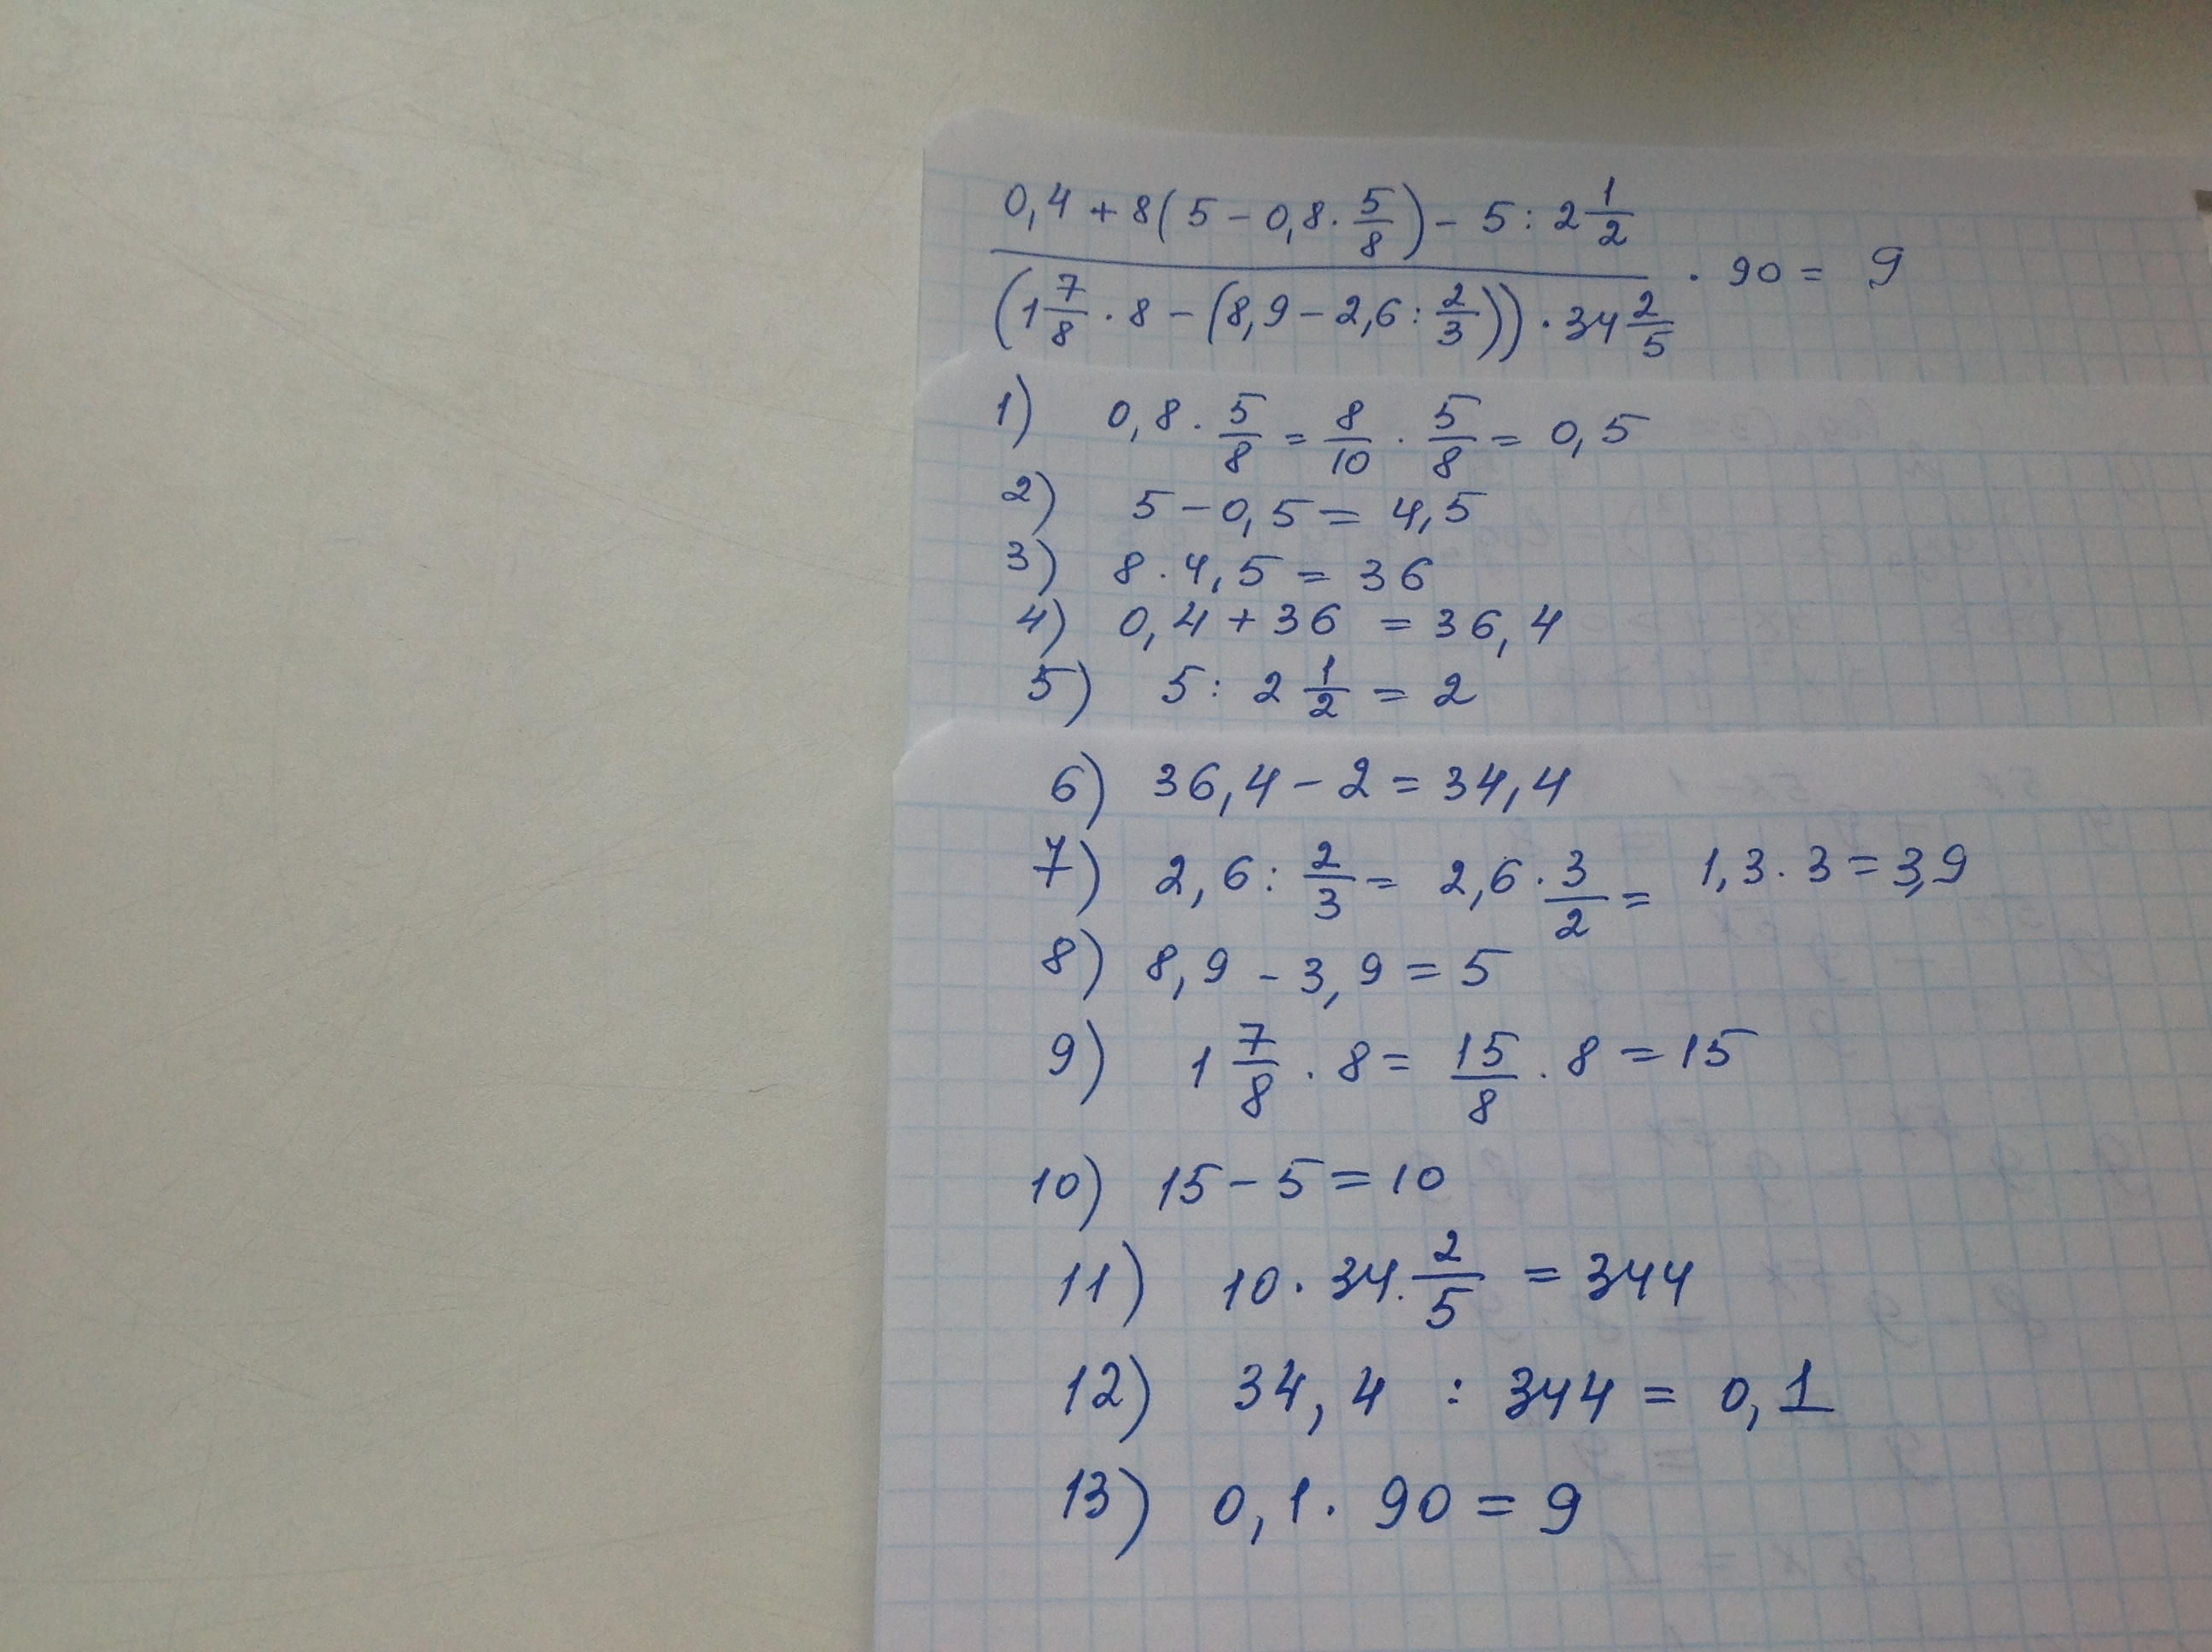 0,4 + 8(5 - 0,8 · 5/8) - 5 : 2 1/2
(1 7/8 · 8 - (8,9 - 2,6 : 2/3)) · 34 2/5
· 90 = 9
1) 0,8 · 5/8 = 8/10 · 5/8 = 0,5
2) 5 - 0,5 = 4,5
3) 8 · 4,5 = 36
4) 0,4 + 36 = 36,4
5) 5 : 2 1/2 = 2
6) 36,4 - 2 = 34,4
7) 2,6 : 2/3 = 2,6 · 3/2 = 1,3 · 3 = 3,9
8) 8,9 - 3,9 = 5
9) 1 7/8 · 8 = 15/8 · 8 = 15
10) 15 - 5 = 10
11) 10 · 34. 2/5 = 344
12) 34,4 : 344 = 0,1
13) 0,1 · 90 = 9